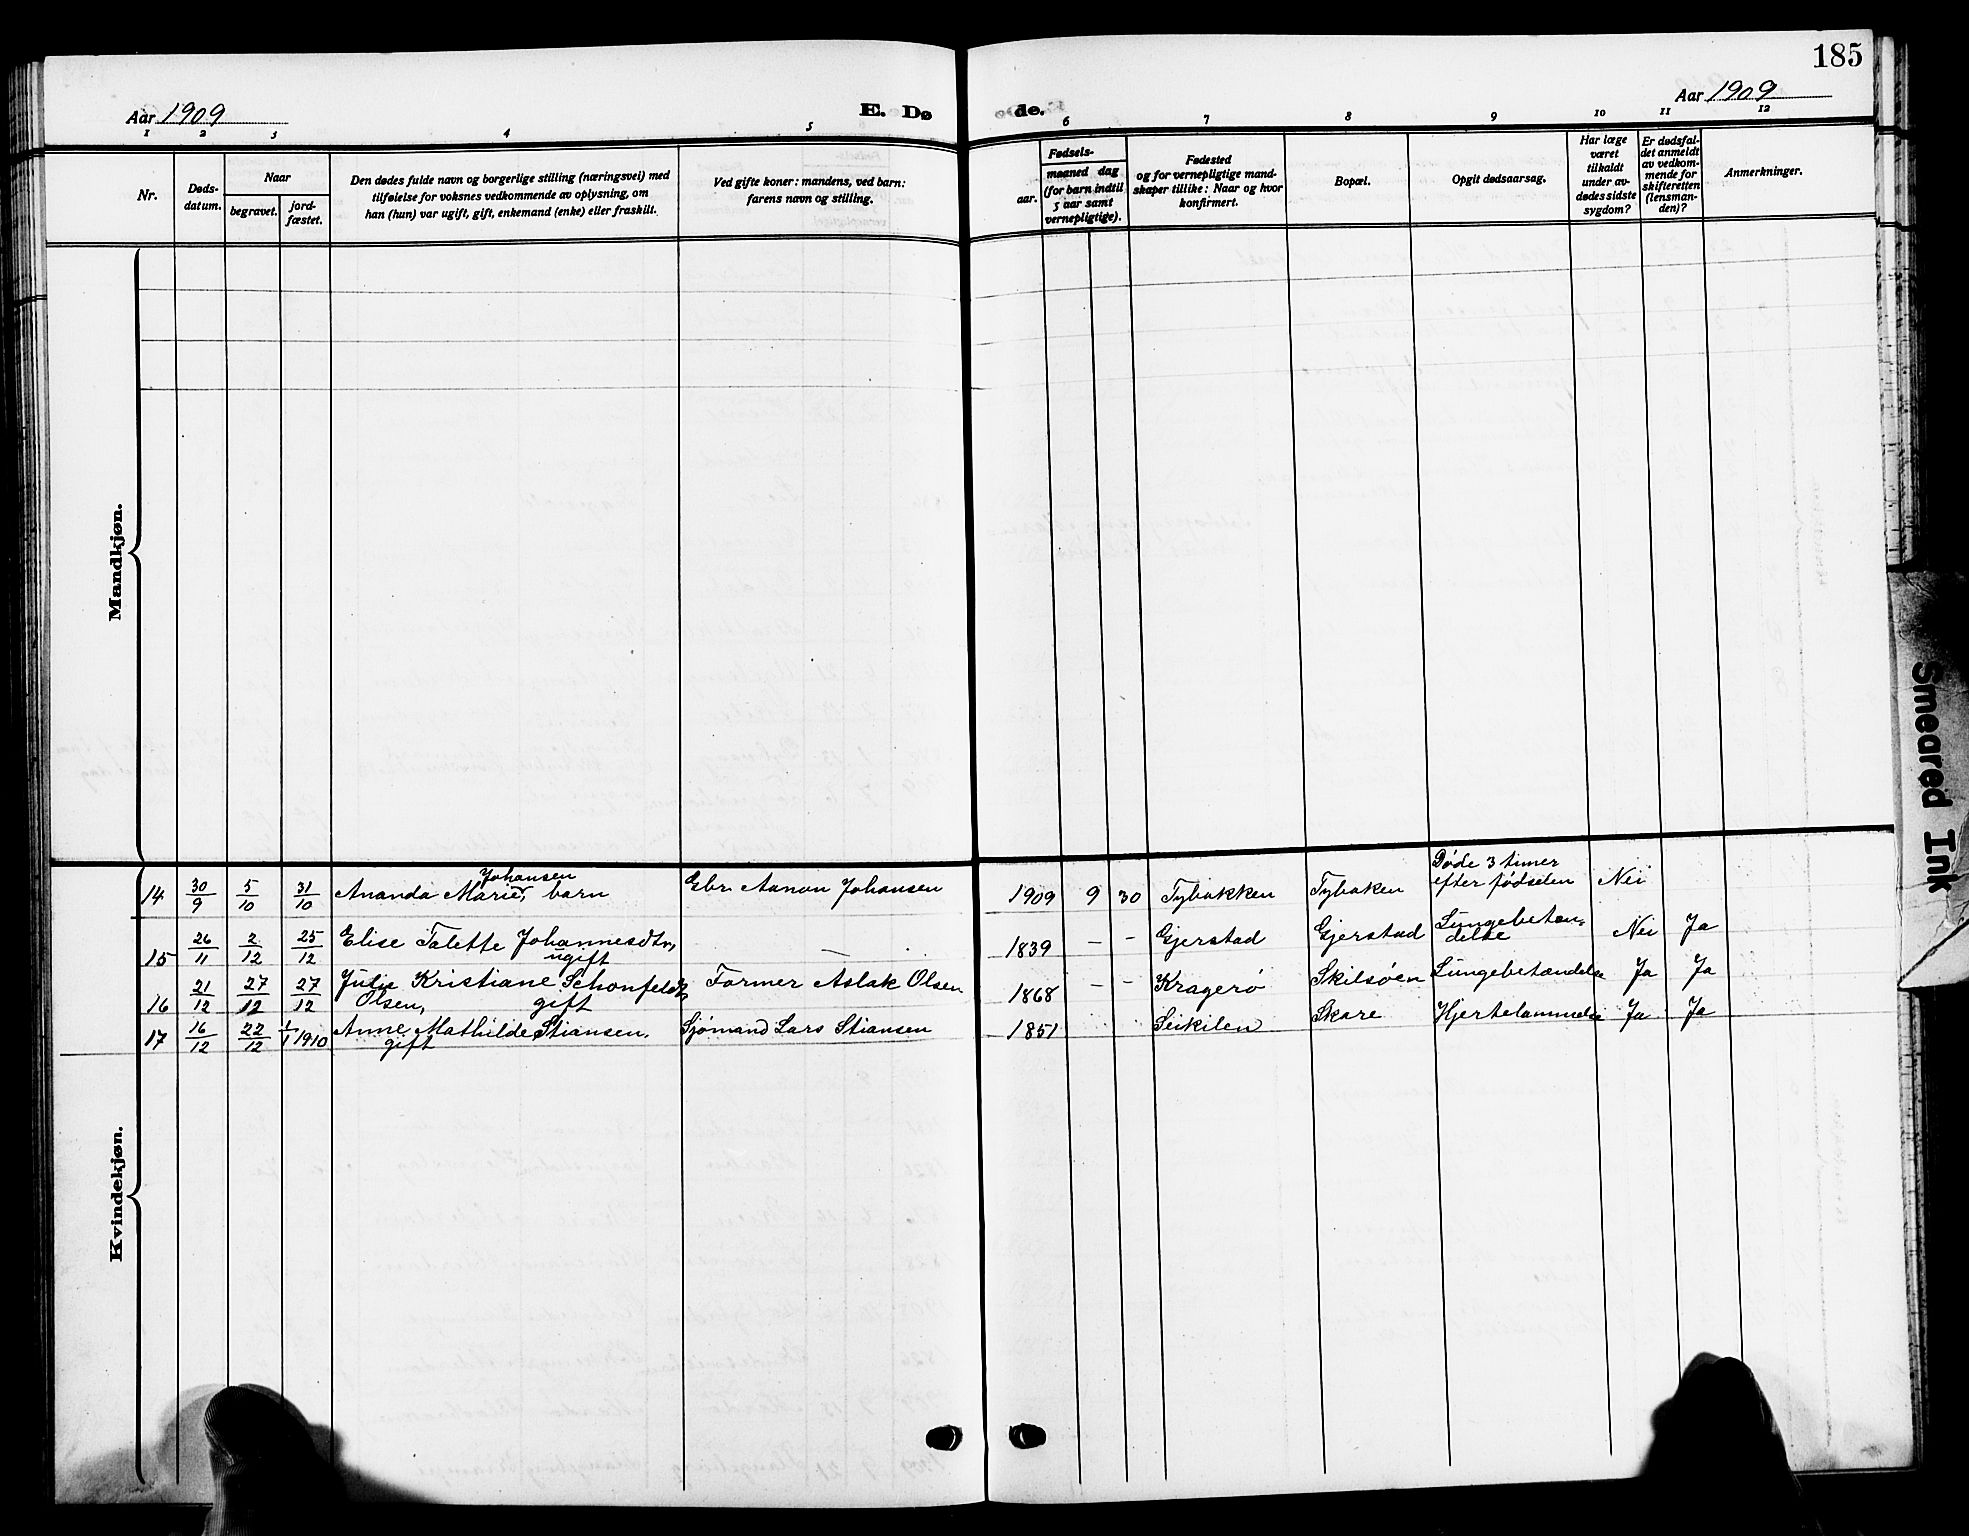 185
Aar 1909
E. Dø
de.
Aar 1909
1 2 3 4 5 6 7 8 9 10 11 12
Nr.
Døds-
datum.
Naar
begravet.
jord-
fæstet.
Den dødes fulde navn og borgerlige stilling (næringsvei) med
tilføielse for voksnes vedkommende av oplysning, om
han (hun) var ugift, gift, enkemand (enke) eller fraskilt.
Ved gifte koner: mandens, ved barn:
farens navn og stilling.
Fødsels-
aar.
maaned dag
(for barn indtil
5 aar samt
vernepligtige).
Fødested
og for vernepligtige mand-
skaper tillike: Naar og hvor
konfirmert.
Bopæl.
Opgit dødsaarsag.
Har læge
været
tilkaldt
under av-
dødes sidste
sygdom?
Er dødsfal-
det anmeldt
av vedkom-
mende for
skifteretten
(lensman-
den)?
Anmerkninger.
Mandkjøn.
Smeared Ink
Kvindekjøn.
Johansen
14 30/9 5/10 31/10 Ananda Marie, barn Gbr Aanon Johansen 1909 9 30 Tybakken Tybaken Døde 3 timer
efter fødselen Nei
15 26/11 2/12 25/12 Elise Talette Johannesdtr, — 1839 — — Gjerstad Gjerstad Lungebetæn-
delse Nei Ja
ugift
16 21/12 27/12 27/12 Julie Kristiane Schonfeldt Former Aslak Olsen 1868 — — Kragerø Skilsøen Lungebetændelse Ja Ja
Olsen, gift
17 16/12 22/12 1/1 1910 Anne Mathilde Stiansen. Sjømand Lars Stiansen 1851 Seikilen Skare Hjertelammelse Ja Ja
gift